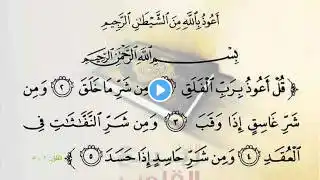 أَعُوذُ بِاللَّهِ مِنَ الشَّيْطَانِ الرَّجِيمِ
بِسْمِ اللَّهِ الرَّحْمَٰنِ الرَّحِيمِ
﴿ قُلْ أَعُوذُ بِرَبِّ الْفَلَقِ ١ مِن شَرِّ مَا خَلَقَ ٢ وَمِن
شَرِّ غَاسِقٍ إِذَا وَقَبَ ٣ وَمِن شَرِّ النَّفَّاثَاتِ فِي
الْعُقَدِ ٤ وَمِن شَرِّ حَاسِدٍ إِذَا حَسَدَ ٥ ﴾